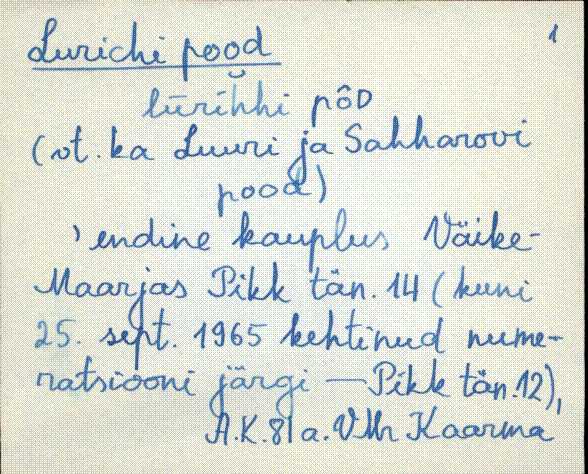 1
Lurichi pood
lūrihhi pôD
(vt. ka Luuri ja Sahharovi
pood)
, endine kauplus Väike-
Maarjas Pikk tän. 14 (kuni
25. sept. 1965 kehtinud nume-
ratsiooni järgi — Pikk tän. 12),
A.K. 81 a. VMr Kaarma